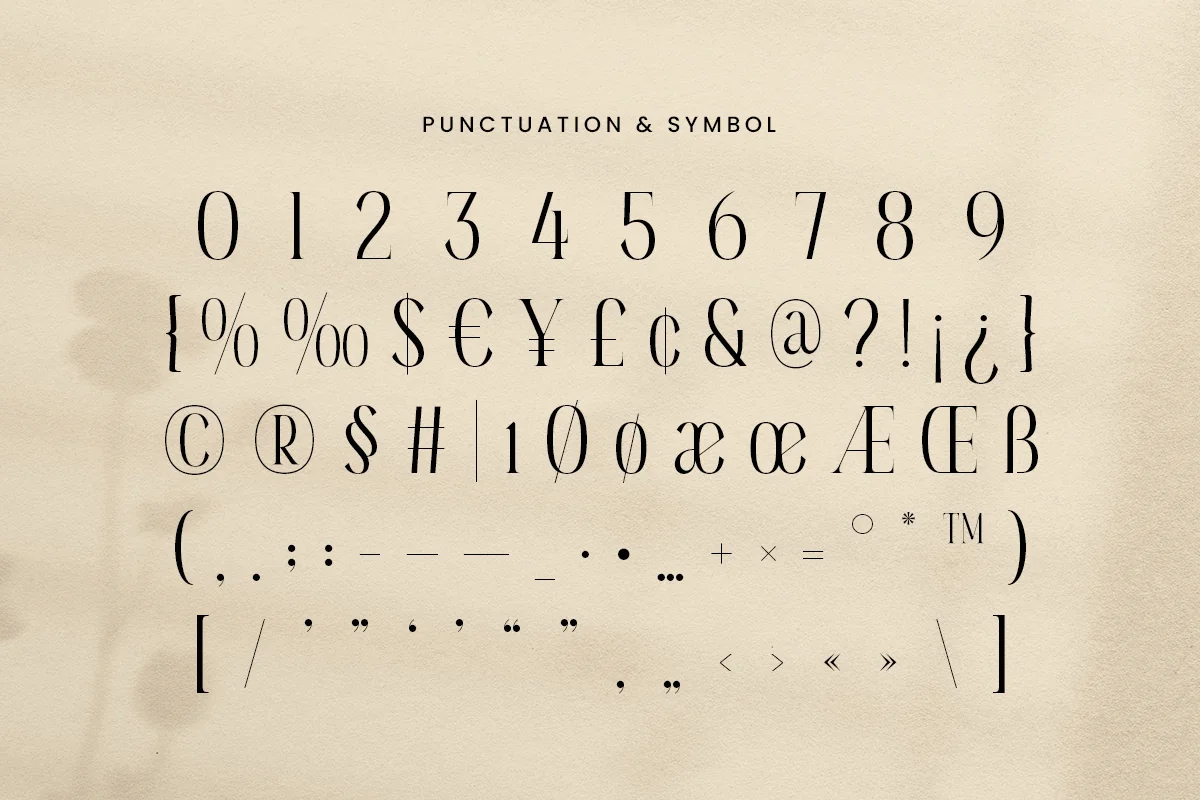 PUNCTUATION & SYMBOL
0 1 2 3 4 5 6 7 8 9
{ % ‰ $ € ¥ £ ¢ & @ ? ! ¡ ¿ }
© ® § # | ı Ø ø æ œ Æ Œ ß
( , . ; : - – — _ · • … + × = ° * ™ )
[ / ' " ‘ ’ “ ” ‚ „ ‹ › « » \ ]